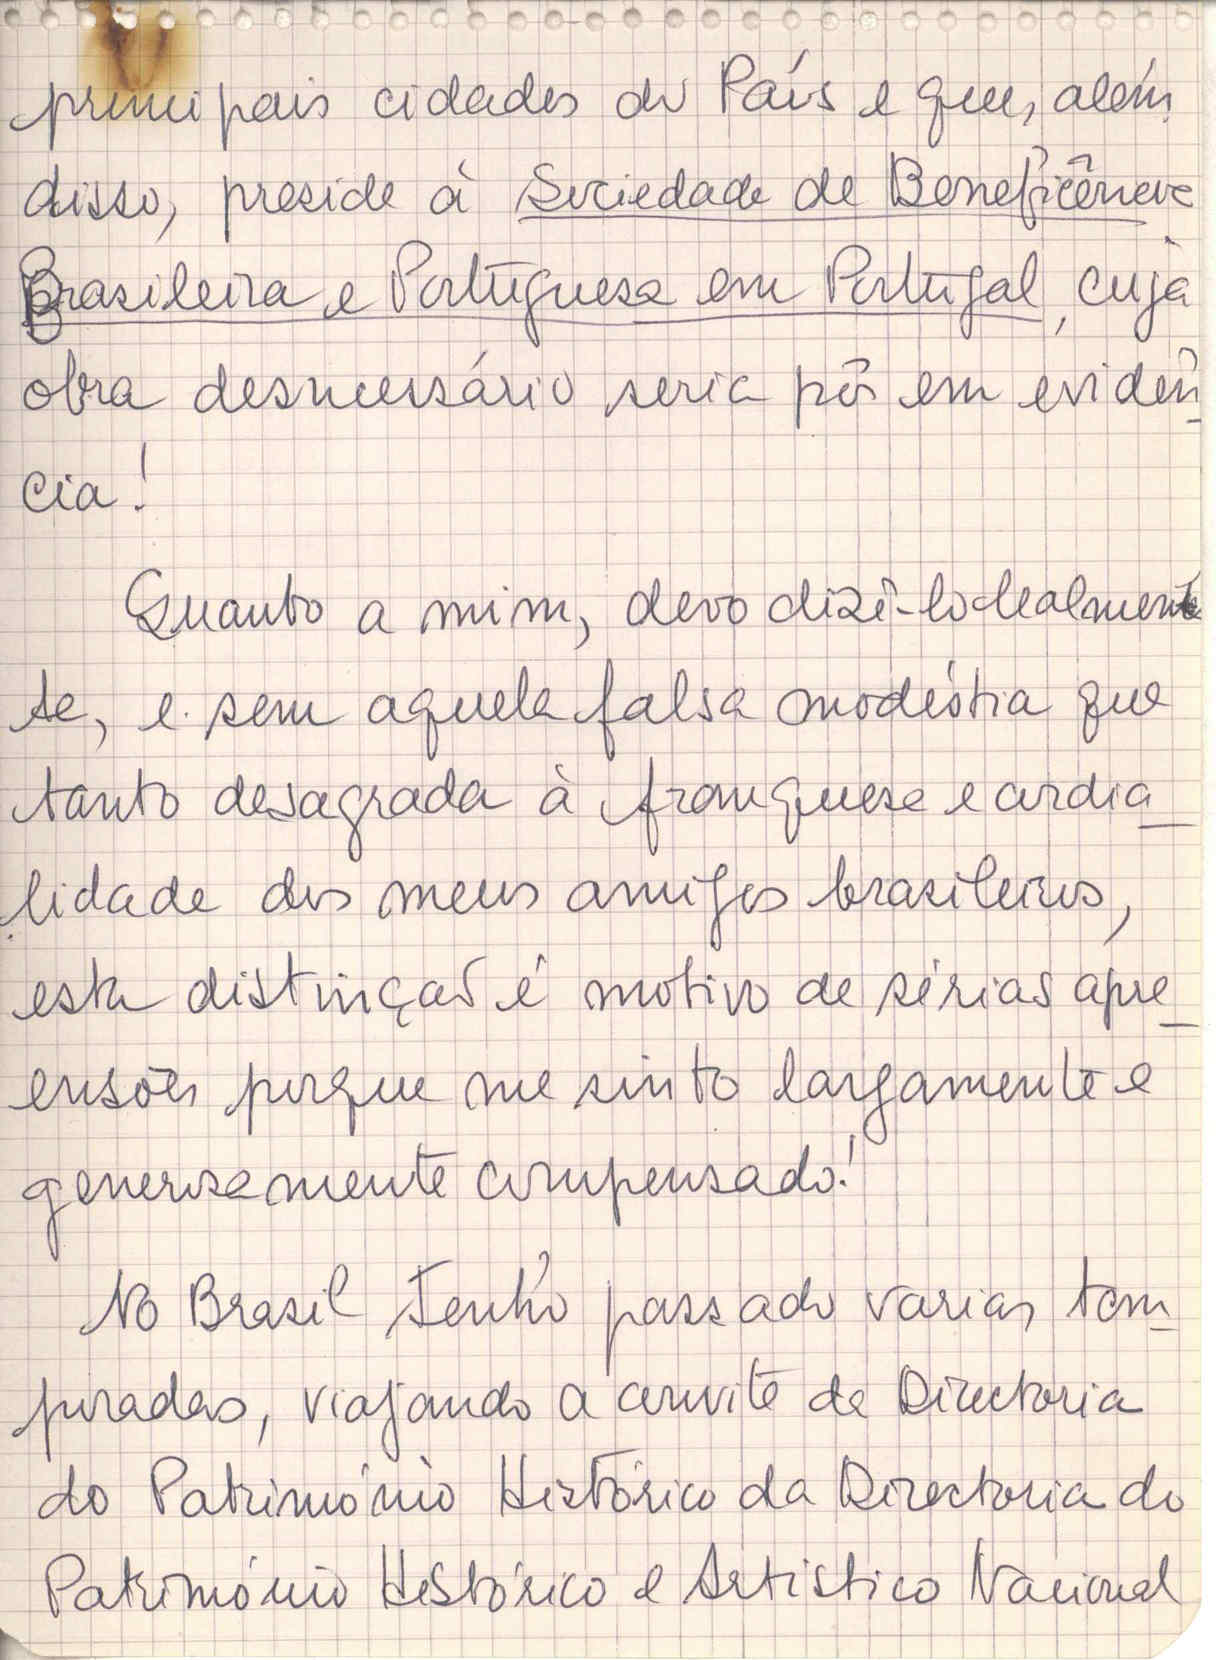 principais cidades do País e que, além
disso, preside à Sociedade de Beneficência
Brasileira e Portuguesa em Portugal, cuja
obra desnecessário seria pôr em evidên-
cia!
Quanto a mim, devo dizê-lo lealmen
te, e sem aquela falsa modéstia que
tanto desagrada à franqueza e cordia-
lidade dos meus amigos brasileiros,
esta distinção é motivo de sérias apre-
ensões porque me sinto largamente e
generosamente compensado!
No Brasil Tenho passado varias tem-
poradas, viajando a convite da Directoria
do Património Histórico da Directoria do
Património Histórico e Artístico Nacional